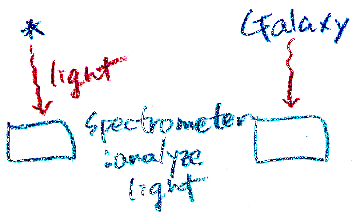 * Galaxy
light
Spectrometer
:analyze
light